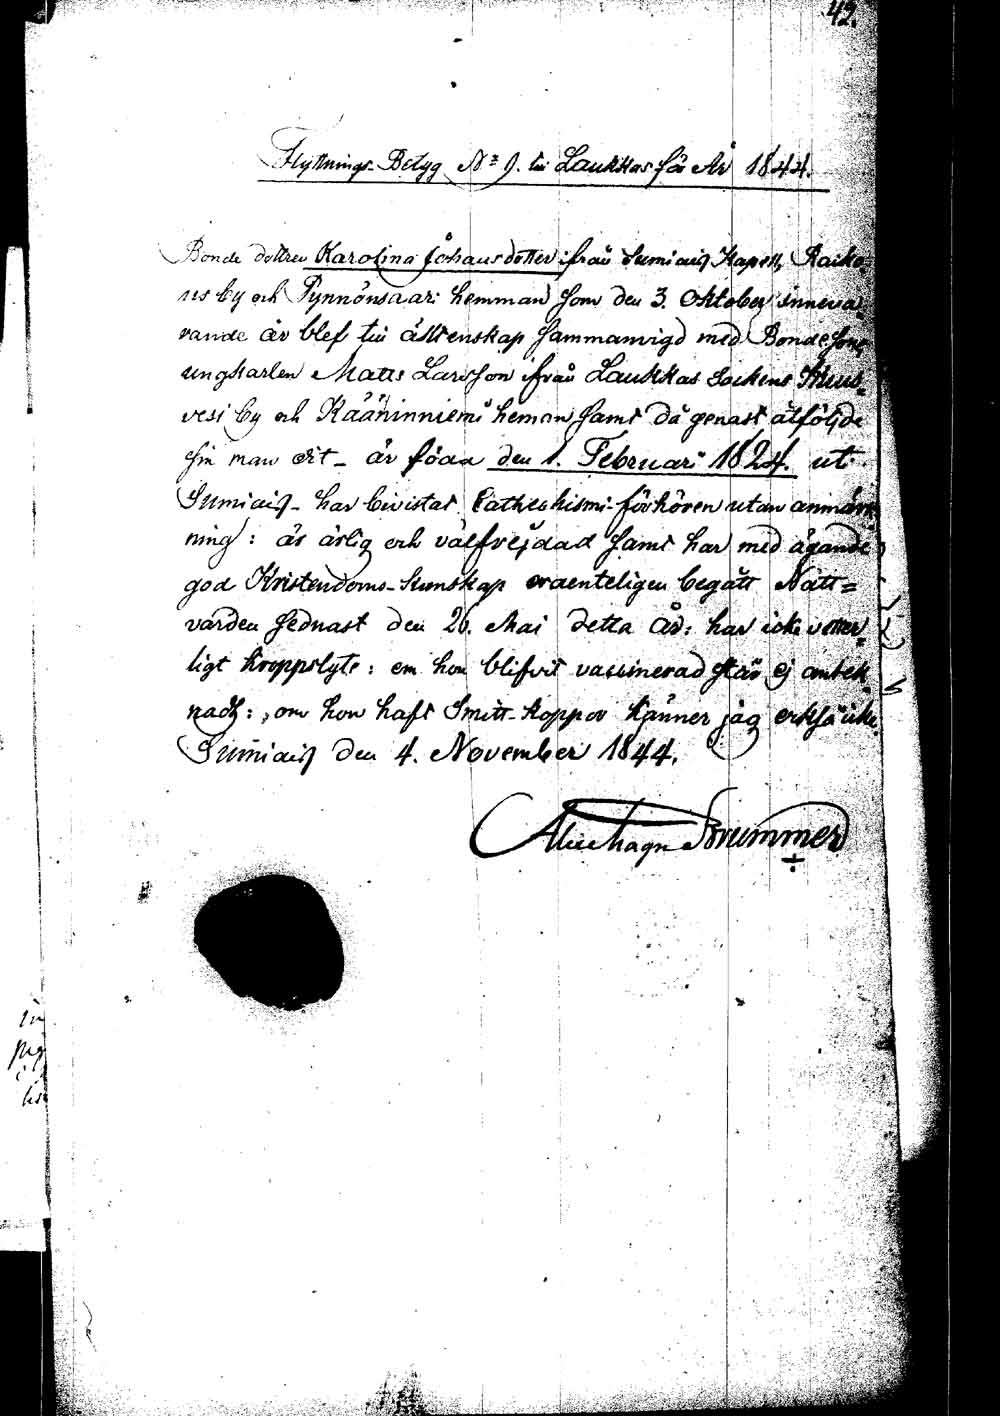 42.
Flyttnings-Betyg No 9. till Laukkas för År 1844.
Bonde dottren Karolina Johansdotter ifrån Sumiais Kapell, Raiko=
us by och Pynnönsaari hemman som den 3. Oktober inneva=
rande år blef till äktenskap sammanvigd med Bonde son,
ungkarlen Matts Larsson ifrån Laukkas Sockens Kuus=
vesi by och Kääninniemi heman samt då genast åtföljde
sin man dit - är föda den 1. Februari 1824. uti
Sumiais - har bivistat Cathechismi-förhören utan anmärk=
ning: är ärlig och välfrejdad samt har med ägande
god Kristendoms-kunskap ordenteligen begått Natt=
varden sednast den 26. Mai detta År: har icke vetter=
ligt kroppslyte: om hon blifvit vaccinerad står ej anteck=
nadt:, om hon haft Smitt-koppor känner jag ock så icke.
Sumiais den 4. November 1844.
Brummer
in
pig